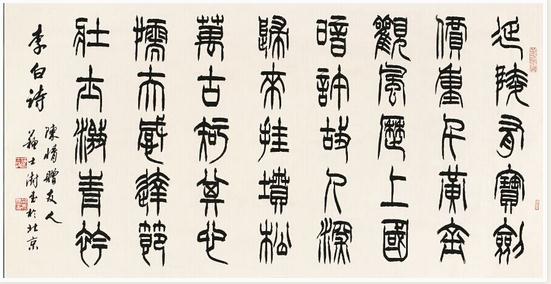 延陵有寶劍
價重千黃金
觀風歷上國
暗許故人深
歸來挂墳松
萬古知其心
懦夫感達節
壯士激青衿
李白詩
陳情贈友人
蘇士澍書於北京